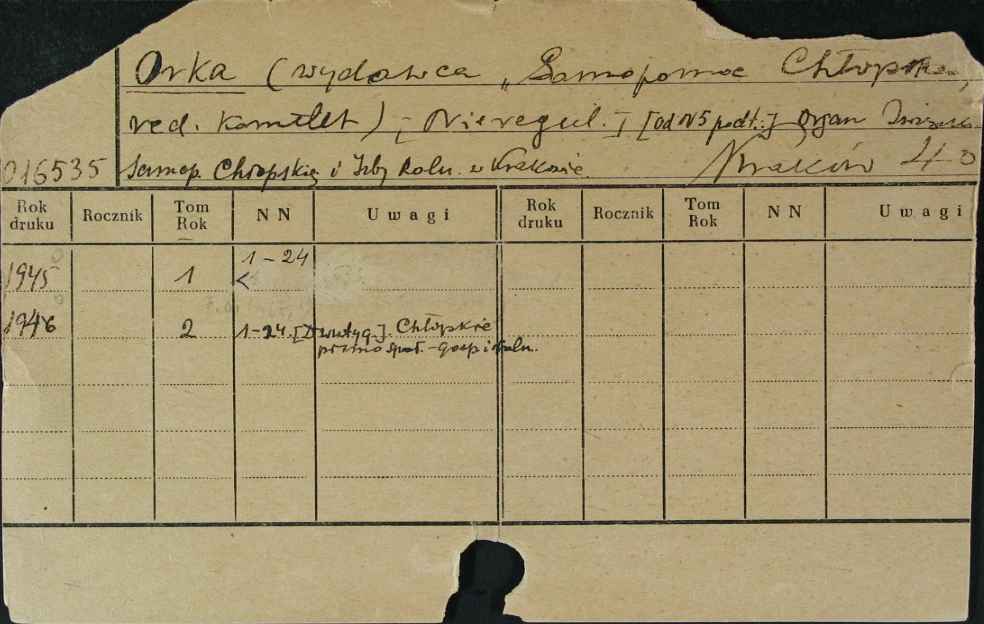 Orka (wydawca „Samopomoc Chłopska",
red. komitet) [Nieregul.] [od N5 podt.:] Organ Związk.
016535 Samop. Chłopskiej i Izby Roln. w Krakowie. Kraków 4-o
Rok druku Rocznik Tom Rok NN Uwagi Rok druku Rocznik Tom Rok NN Uwagi
1945 1 1-24
<
1946 2 1-24. [Dwutyg.]. Chłopskie
pismo społ.-gosp i roln.